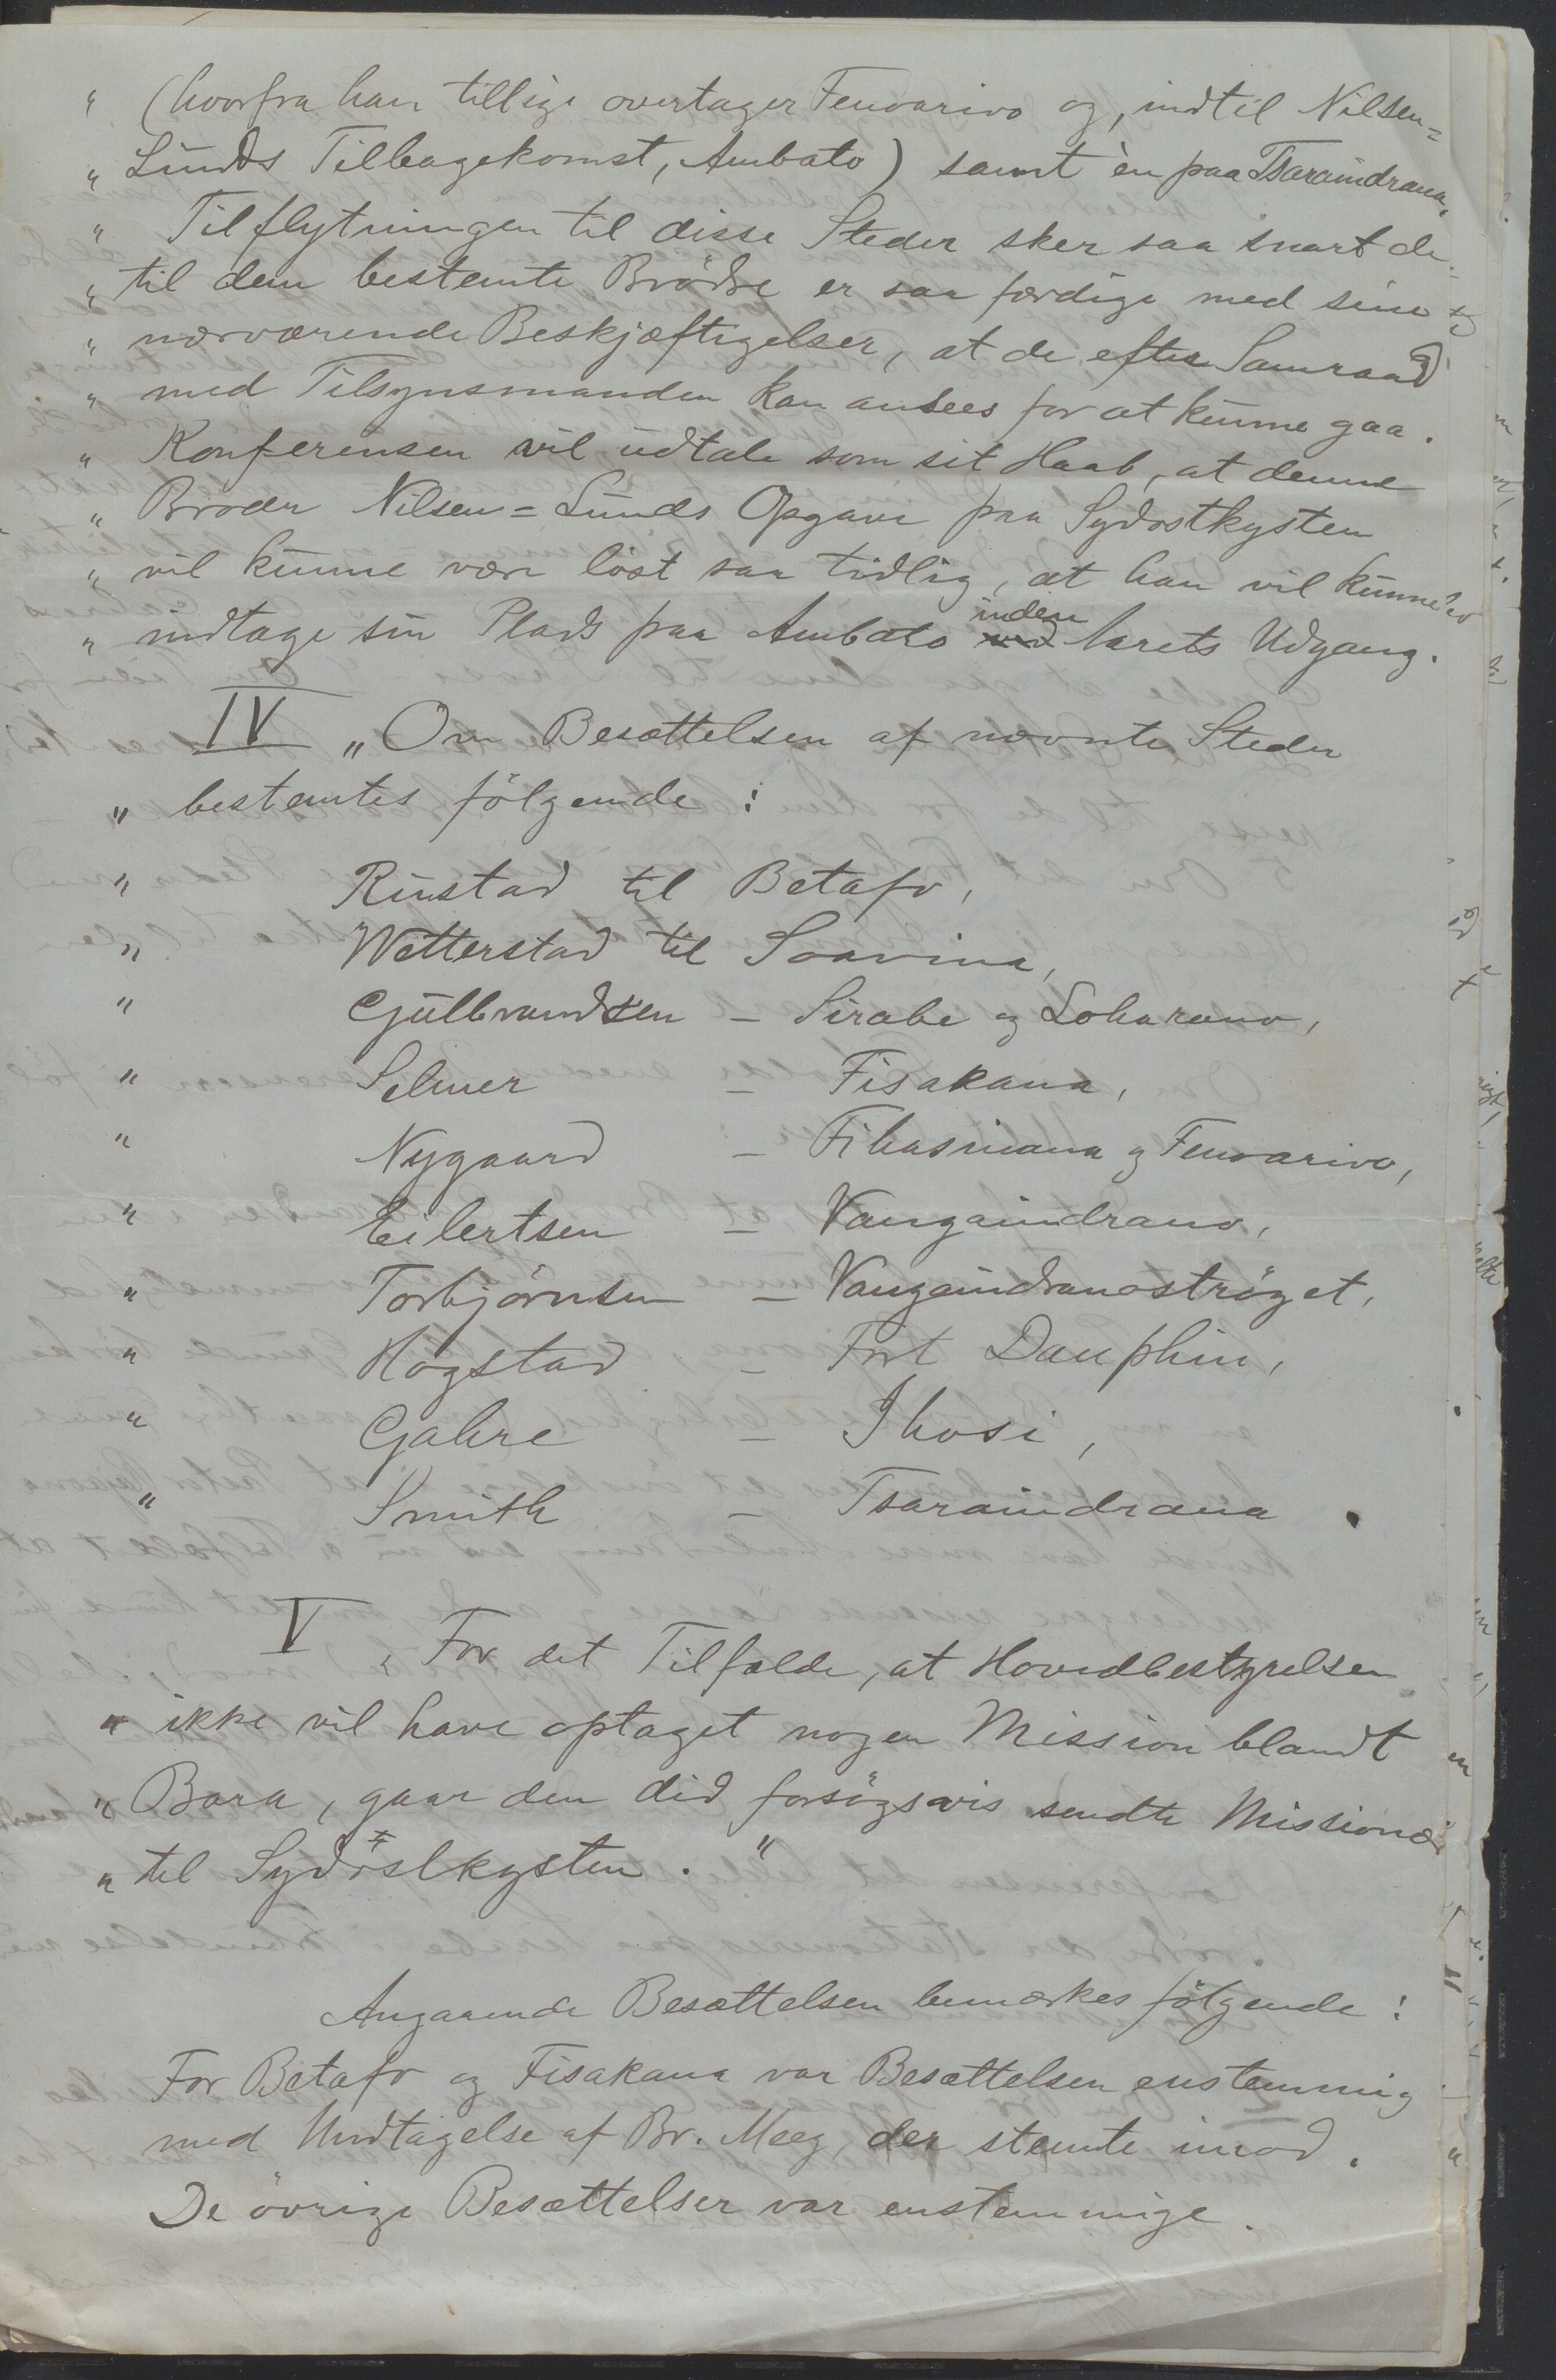 " (hvorfra han tillige overtager Fenoarivo og, indtil Nilsen=
" Lunds Tilbagekomst, Ambato) samt èn paa Tsaraindrana.
" Tilflytningen til disse Steder sker saa snart de
" til dem bestemte Brödre er saa færdige med sine
" nærværende Beskjæftigelser, at de efter Samraad
" med Tilsynsmanden kan ansees for at kunne gaa.
" Konferensen vil udtale som sit Haab, at denne
" Broder Nilsen=Lunds Opgave paa Sydostkysten
" vil kunne være löst saa tidlig, at han vil kunne
" indtage sin Plads paa Ambato inden Aarets Udgang.
IV "Om Besættelsen af nævnte Steder
" bestemtes fölgende:
" Rustad til Betafo,
" Wetterstad til Soavina,
" Gulbrandsen – Sirabe og Loharano,
" Selmer – Fisakana,
" Nygaard – Fihasinana og Fenoarivo,
" Eilertsen – Vangaindrano,
" Torbjörnsen – Vangaindranoströget,
" Högstad – Fort Dauphin,
" Gahre – Ihosi,
" Smith – Tsaraindrana.
V " For det Tilfælde, at Hovedbestyrelsen
" ikke vil have optaget nogen Mission blandt
" Bara, gaar den did forsögsvis sendte Missionær
" til Sydöstkysten."
Angaaende Besættelsen bemærkes fölgende:
For Betafo og Fisakana var Besættelsen enstemmig
med Undtagelse af Br. Meeg, der stemte imod.
De övrige Besættelser var enstemmige.